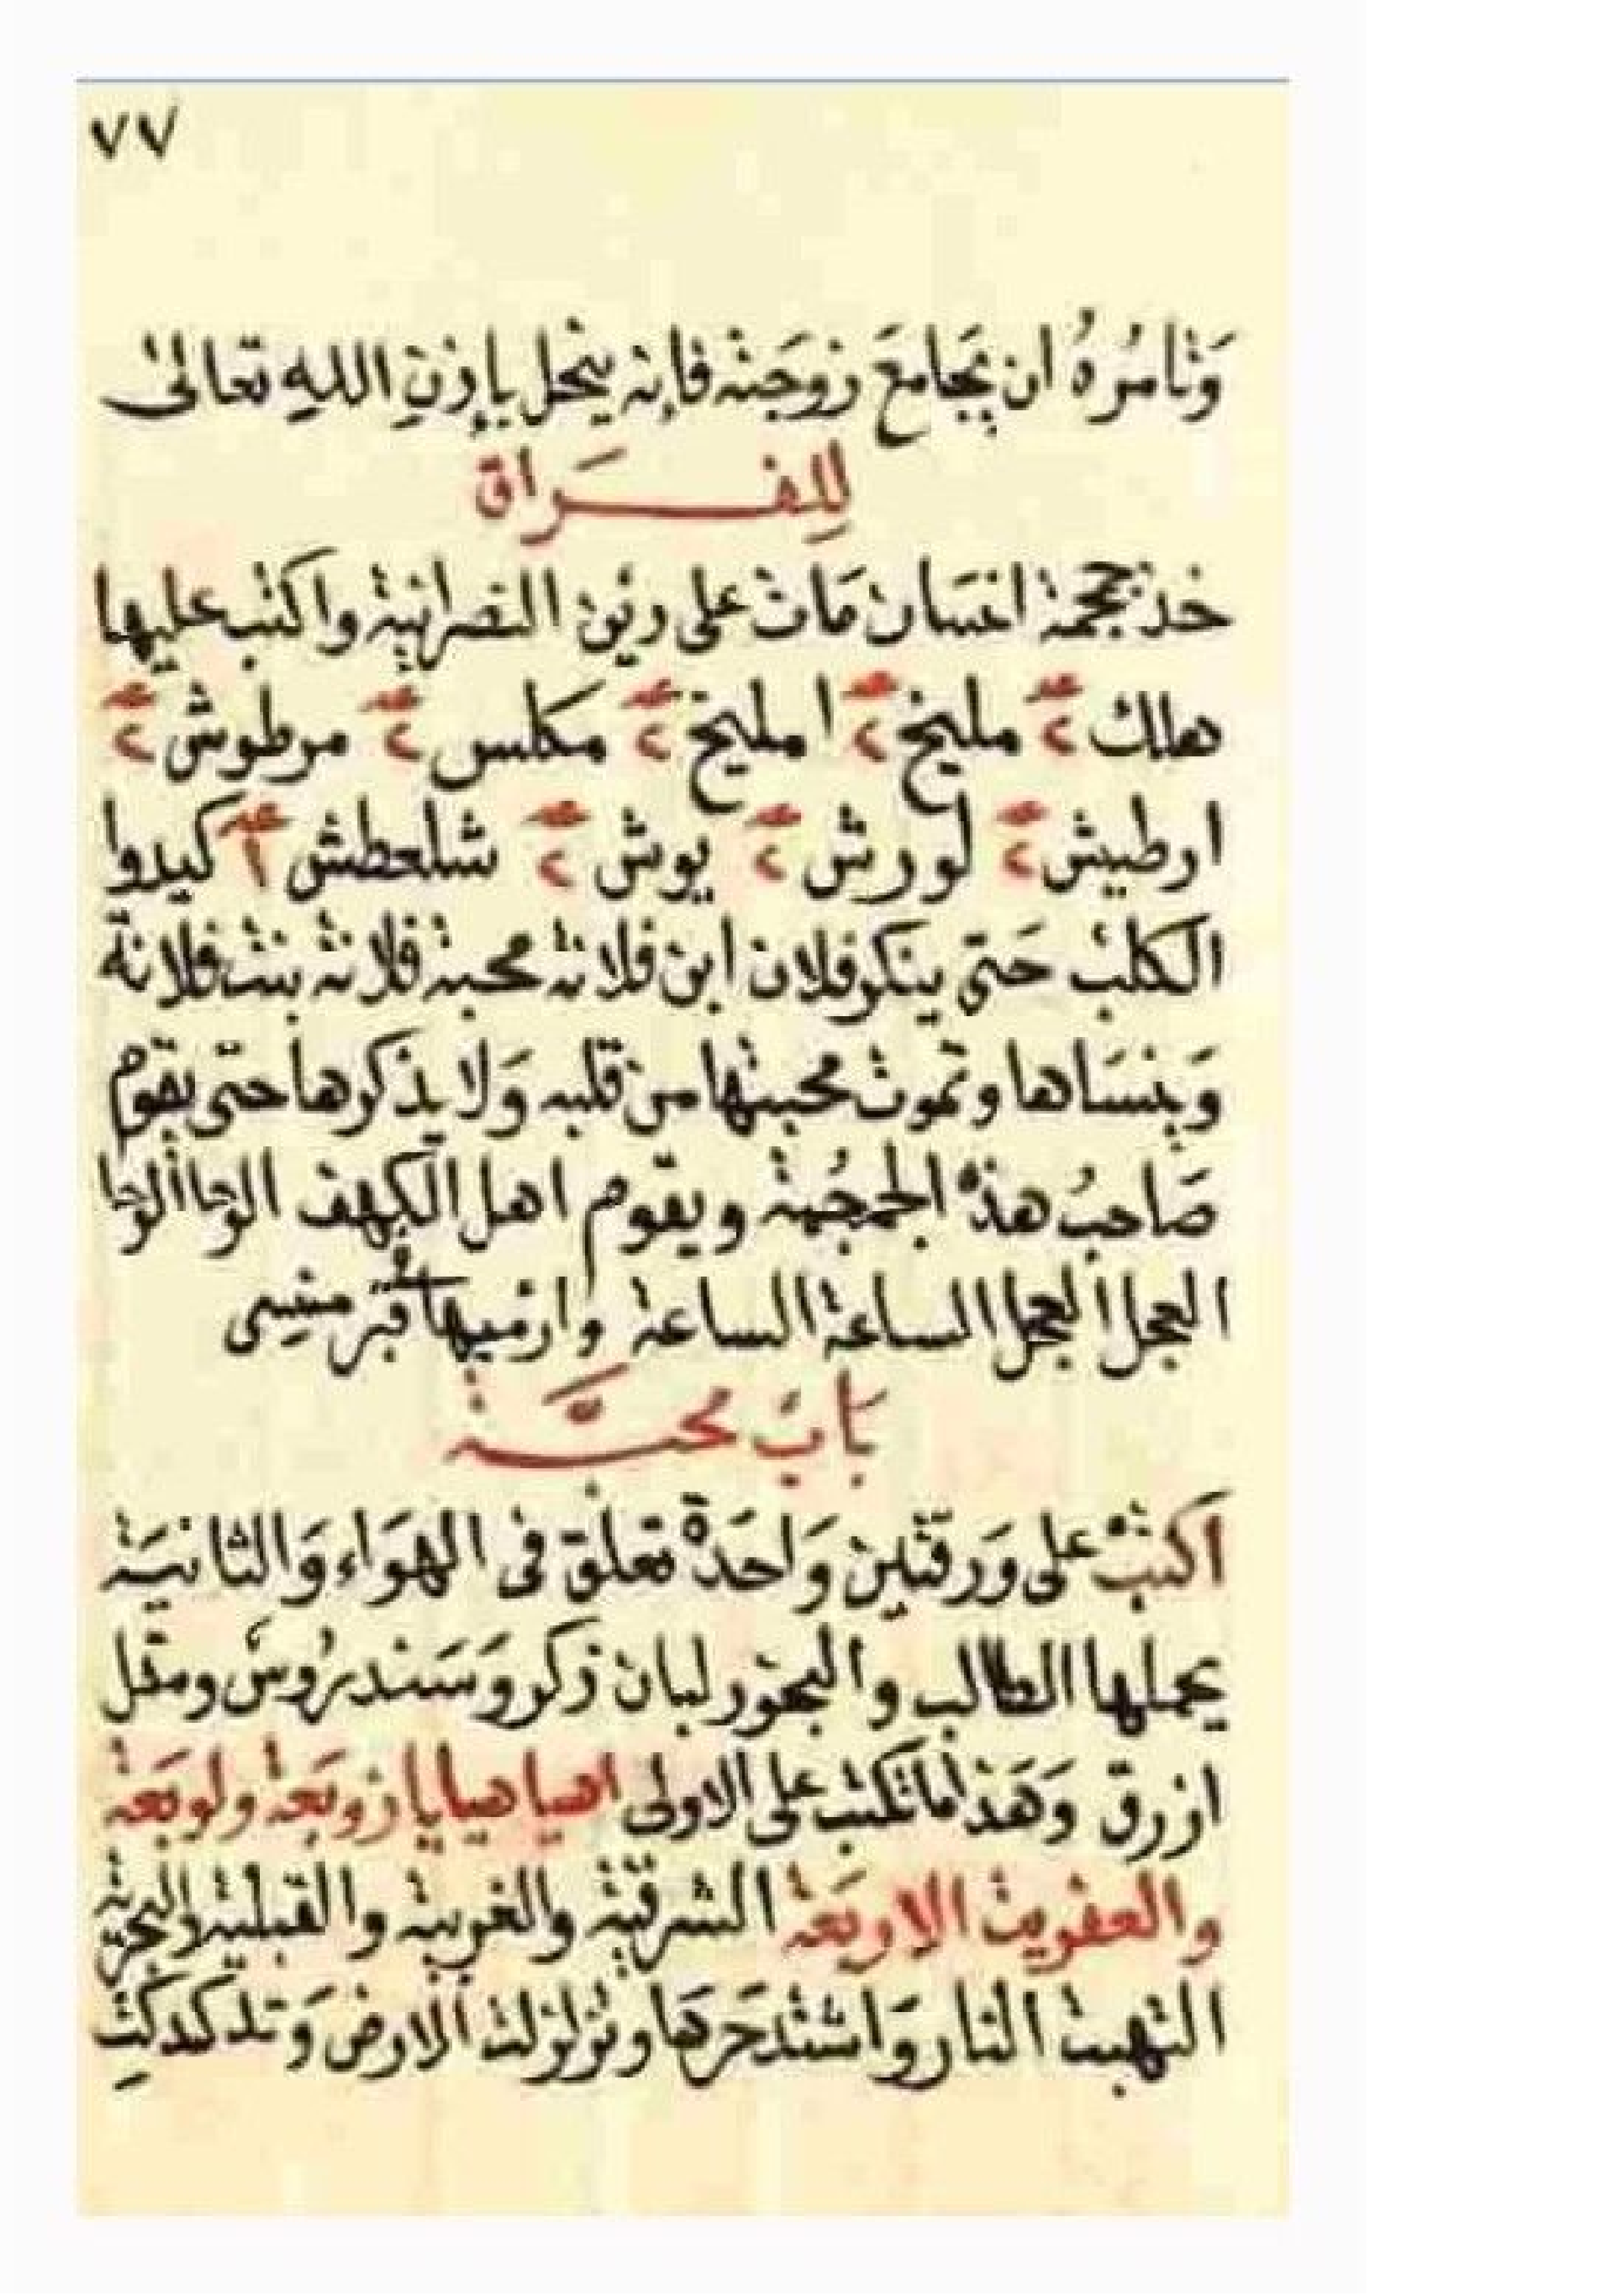 ٧٧
وَتَامُرُهُ ان يُجَامِعَ زوجَته فإنه ينحل بإذنِ اللهِ تعالىٰ
لِلفــرَاق
خذ جمجمة انسَان مَات على دين النصرانية واكتب عليها
هلك ٢ مليخ ٢ امليخ ٢ مكلس ٢ مرطوش ٢
ارطيش ٢ لورش ٢ يوش ٢ شلعطش كيدوا
الكلب حَتى ينكر فلان ابن فلانة محبة فلانة بنت فلانة
وَينسَاها وتموت محبتها من قلبه وَلا يذكرها حتى يقوم
صَاحبُ هذه الجمجُمة ويقوم اهل الكهف الوحا الوحا
العجل العجل الساعة الساعة وارميها قبر منسِى
بَابُ محبَّــة
اكتبْ على وَرقتين وَاحدَة تعلق فى الهوَاء وَالثانيَة
يحملها الطالب والبخور لبان ذكر وَسَندرُوسْ ومقل
ازرق وَهَذا ما تكتب على الاولى اهيا هيا يا زوبَعة ولوبَعة
والعفريت الاربعَة الشرقية والغربية والقبلية والبحرية
التهبت النار وَاشتد حَرهَا وتزلزلت الارض وَتدكدكتِ